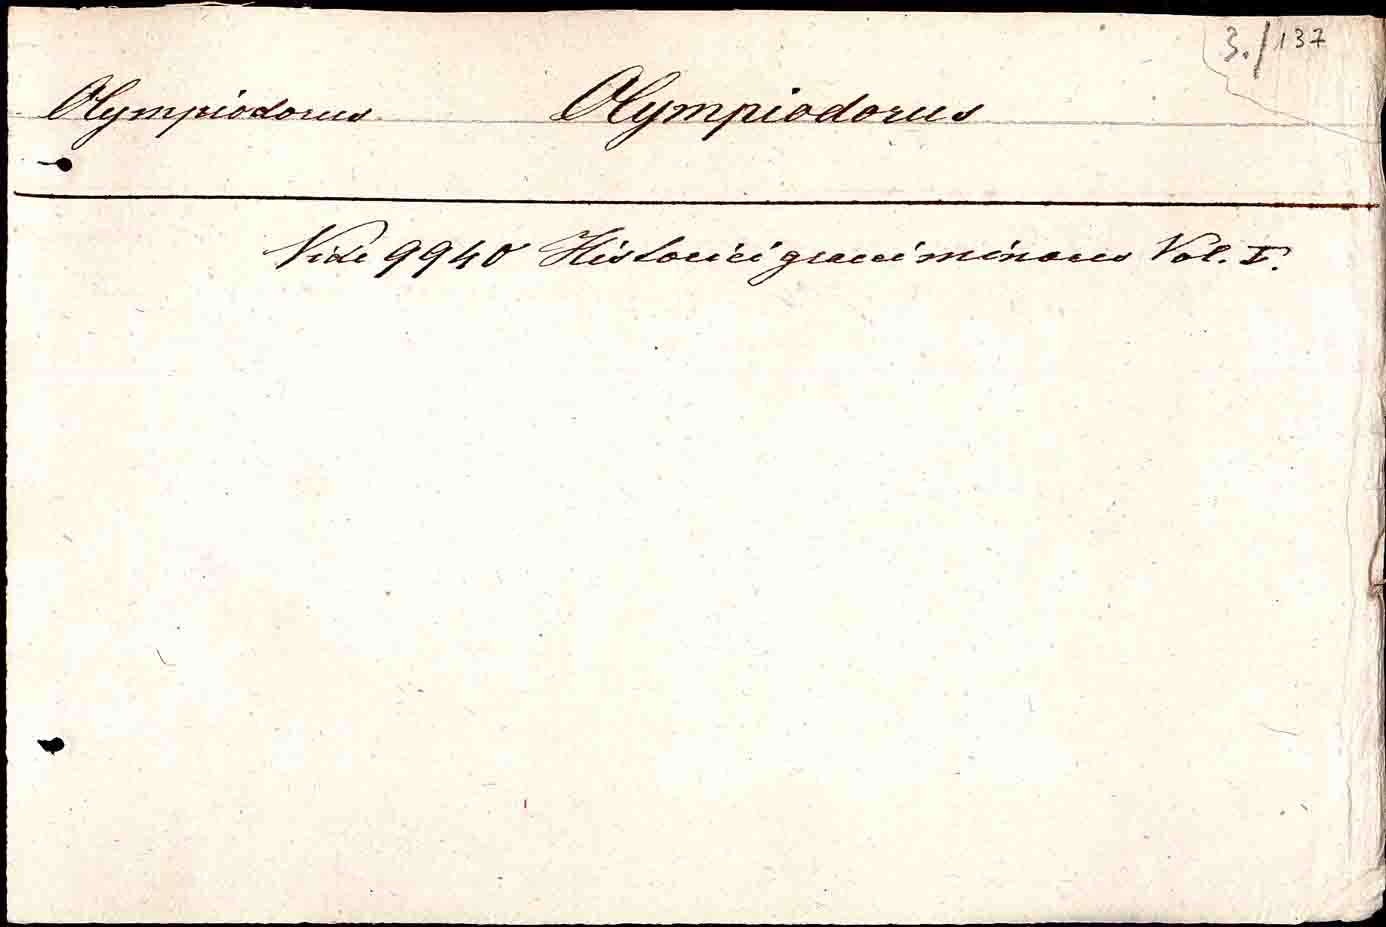 3./137
Olympiodorus Olympiodorus
Vide 9940 Historici graeci minores Vol. I.